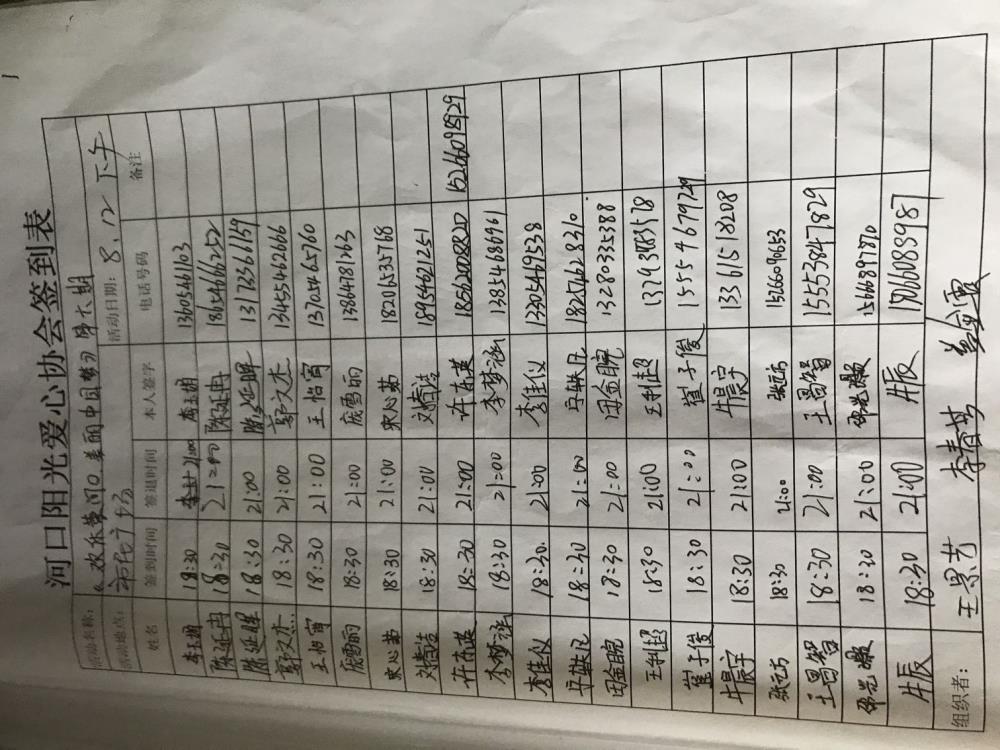 河口阳光爱心协会签到表
活动名称: "欢乐黄河口 美丽中国梦" 第六期
活动地点: 市民广场 活动日期: 8.12 下午
姓名 签到时间 签退时间 本人签字 电话号码 备注
李玉娟 18:30 21:00 李玉娟 13605461103
陈延冉 18:30 21:00 陈延冉 18654666252
陈延晖 18:30 21:00 陈延晖 13173366159
郭文杰 18:30 21:00 郭文杰 13455462666
王怡宵 18:30 21:00 王怡宵 13705465760
庞雪丽 18:30 21:00 庞雪丽 13864781263
宋心茹 18:30 21:00 宋心茹 18206535768
刘梼洁 18:30 21:00 18954621251
许东英 18:30 21:00 许东英 18562008820 15266098929
李梦涵 18:30 21:00 李梦涵 13854686961
李佳仪 18:30 21:00 李佳仪 13305469538
18:30 21:00 18256462836
田金鹏 18:30 21:00 田金鹏 13280335388
王利超 18:30 21:00 王利超 13293835578
崔子俊 18:30 21:00 崔子俊 15554679729
牛晨宇 18:30 21:00 牛晨宇 13361518208
18:30 21:00 15266090653
王昌智 18:30 21:00 王昌智 15553847829
18:30 21:00 15666897870
牛振 18:30 21:00 牛振 17660889987
组织者: 王景艺 李春芳